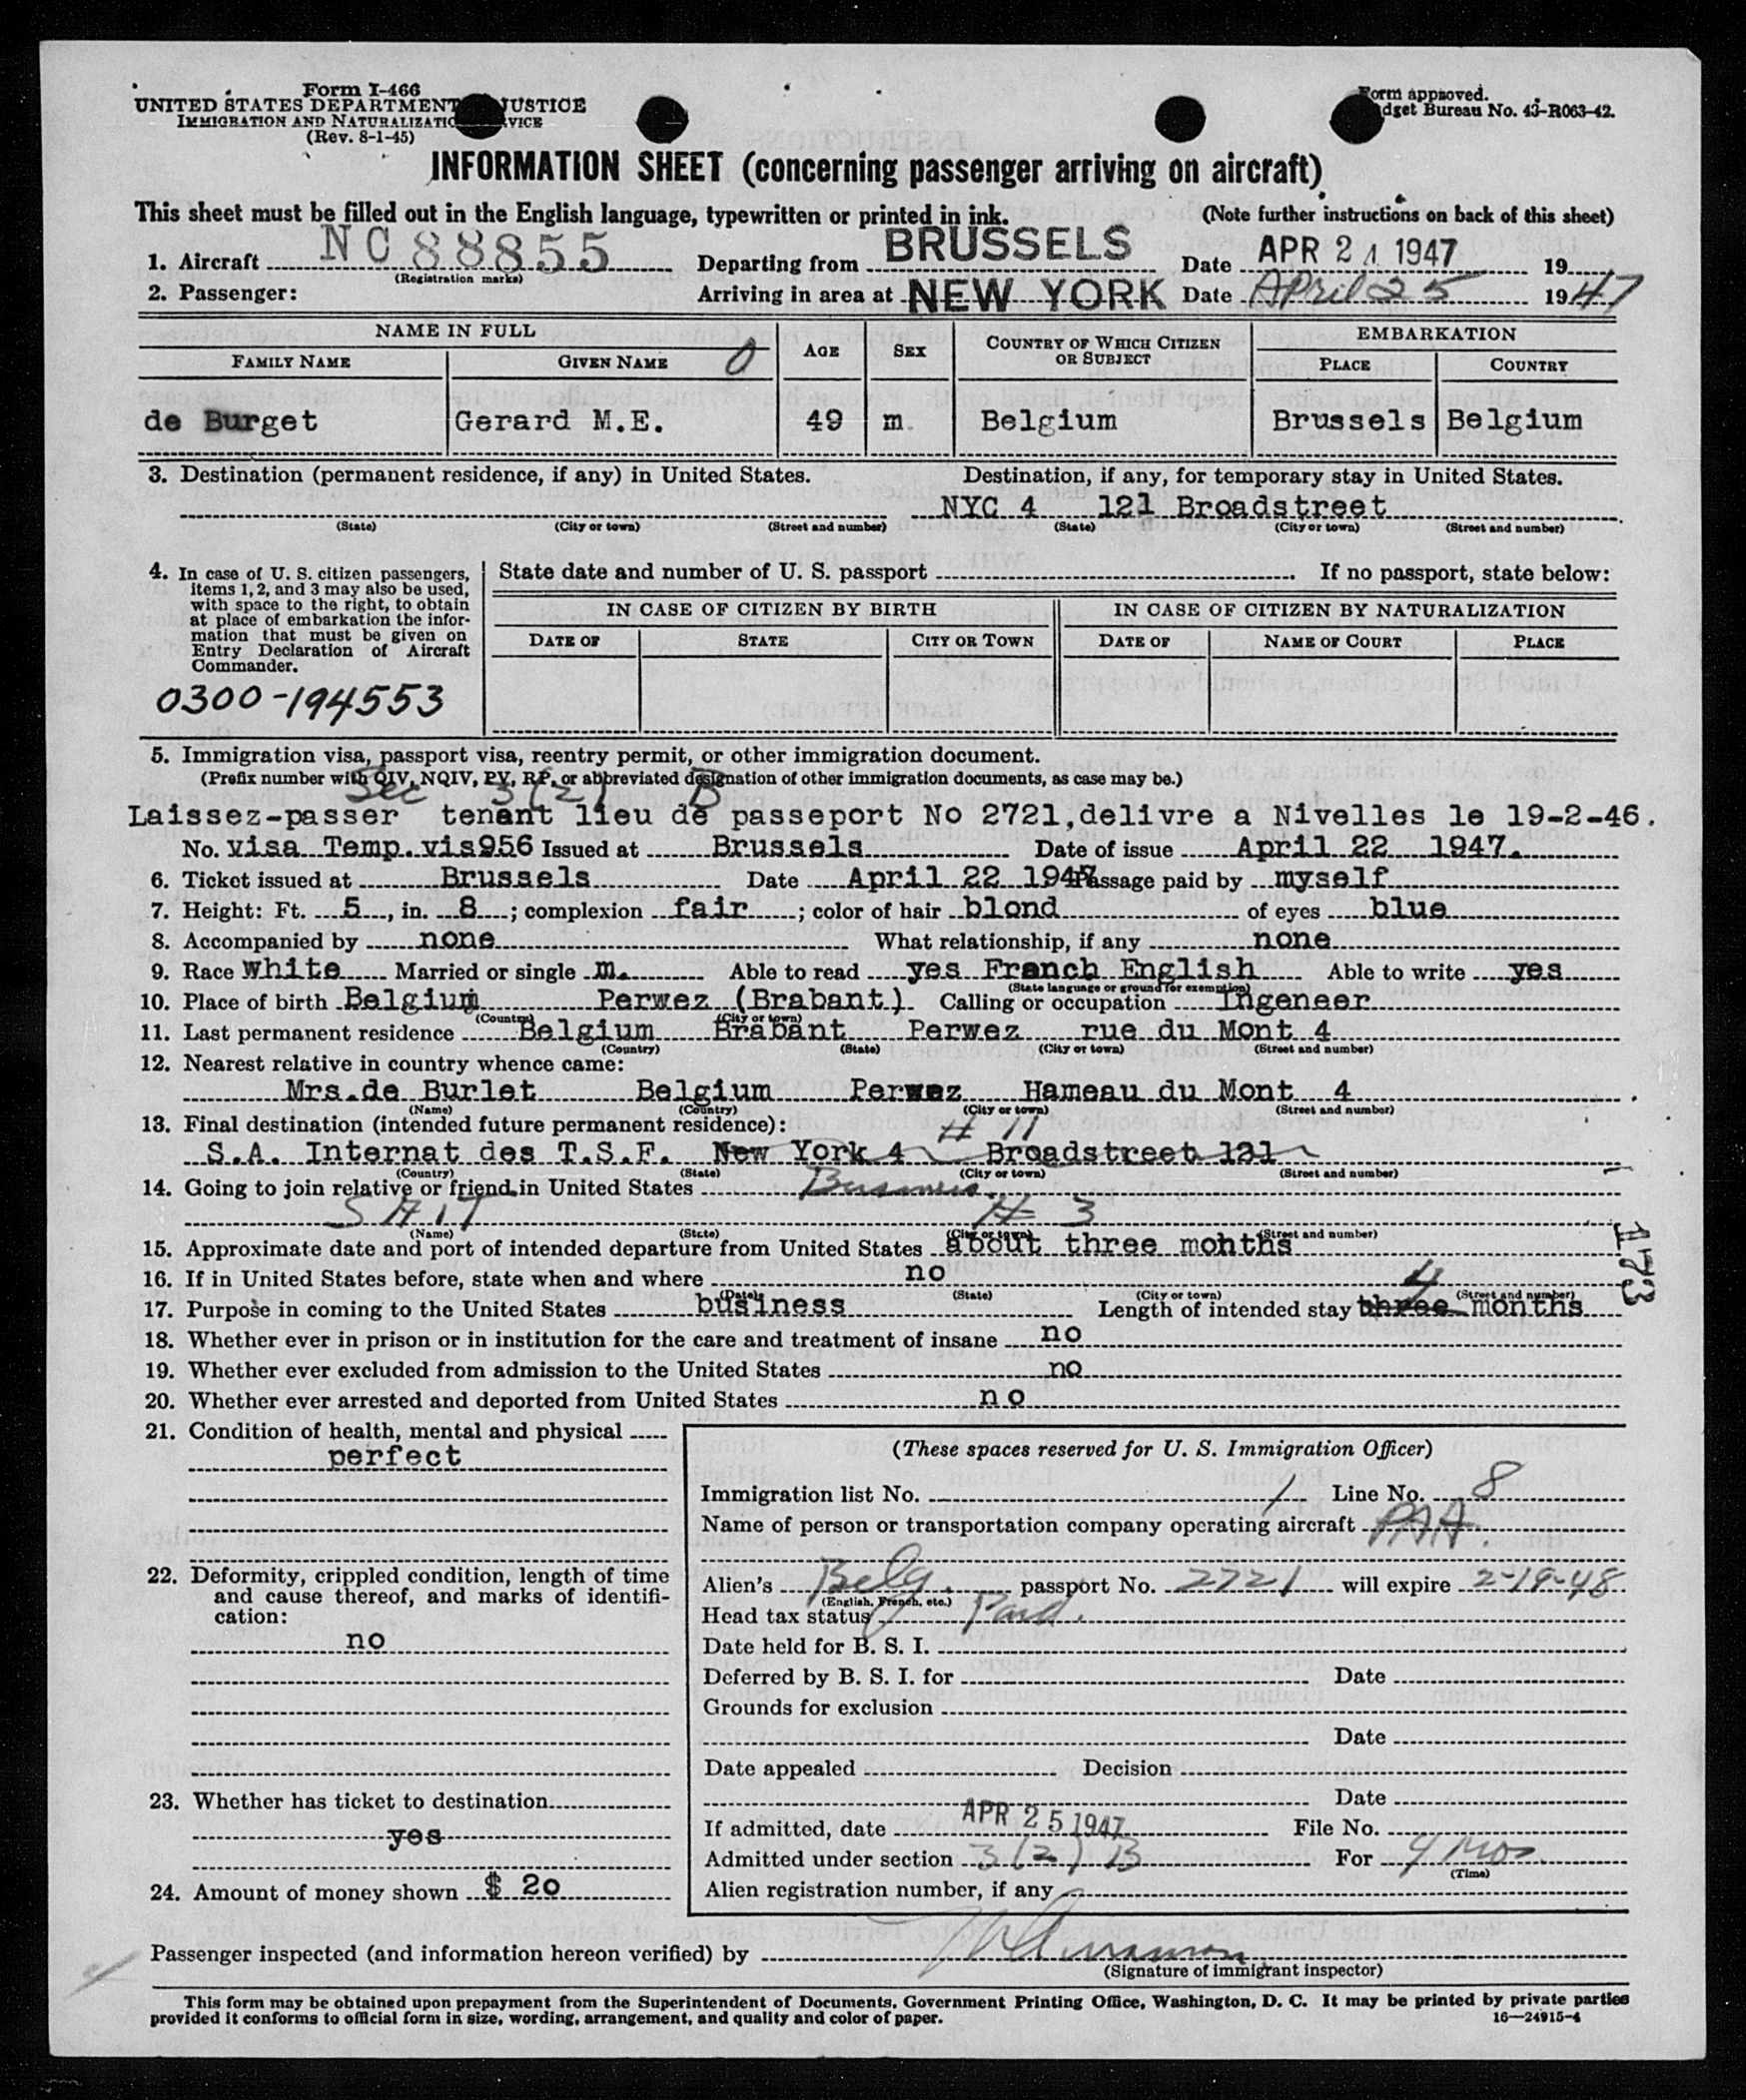 Form I-466
UNITED STATES DEPARTMENT JUSTICE
IMMIGRATION AND NATURALIZATIO VICE
(Rev. 8-1-45)
Form approved.
dget Bureau No. 43-R063-42.
INFORMATION SHEET (concerning passenger arriving on aircraft)
This sheet must be filled out in the English language, typewritten or printed in ink. (Note further instructions on back of this sheet)
1. Aircraft NC 88855 Departing from BRUSSELS Date APR 24 1947 19
(Registration marks)
2. Passenger: Arriving in area at NEW YORK Date April 25 1947
NAME IN FULL AGE SEX COUNTRY OF WHICH CITIZEN OR SUBJECT EMBARKATION
FAMILY NAME GIVEN NAME PLACE COUNTRY
de Burget Gerard M.E. 49 m Belgium Brussels Belgium
3. Destination (permanent residence, if any) in United States. Destination, if any, for temporary stay in United States.
NYC 4 121 Broadstreet
(State) (City or town) (Street and number) (State) (City or town) (Street and number)
4. In case of U. S. citizen passengers,
items 1, 2, and 3 may also be used,
with space to the right, to obtain
at place of embarkation the infor-
mation that must be given on
Entry Declaration of Aircraft
Commander.
0300-194553
State date and number of U. S. passport If no passport, state below:
IN CASE OF CITIZEN BY BIRTH IN CASE OF CITIZEN BY NATURALIZATION
DATE OF STATE CITY OR TOWN DATE OF NAME OF COURT PLACE
5. Immigration visa, passport visa, reentry permit, or other immigration document.
(Prefix number with QIV, NQIV, PV, RP, or abbreviated designation of other immigration documents, as case may be.)
Sec 3(2) B
Laissez-passer tenant lieu de passeport No 2721,delivre a Nivelles le 19-2-46.
No. visa Temp.vis956 Issued at Brussels Date of issue April 22 1947.
6. Ticket issued at Brussels Date April 22 1947 Passage paid by myself
7. Height: Ft. 5, in. 8; complexion fair; color of hair blond of eyes blue
8. Accompanied by none What relationship, if any none
9. Race White Married or single m. Able to read yes Franch English Able to write yes
(State language or ground for exemption)
10. Place of birth Belgium Perwez (Brabant) Calling or occupation Ingeneer
(Country) (City or town)
11. Last permanent residence Belgium Brabant Perwez rue du Mont 4
(Country) (State) (City or town) (Street and number)
12. Nearest relative in country whence came:
Mrs.de Burlet Belgium Perwez Hameau du Mont 4
(Name) (Country) (City or town) (Street and number)
13. Final destination (intended future permanent residence): # 11
S.A. Internat des T.S.F. New York 4 Broadstreet 131
(Country) (State) (City or town) (Street and number)
14. Going to join relative or friend in United States Business
# 3
(Name) (State) (City or town) (Street and number)
15. Approximate date and port of intended departure from United States about three months
16. If in United States before, state when and where no
(Date) (State) (City or town) (Street and number)
17. Purpose in coming to the United States business Length of intended stay three 4 months
18. Whether ever in prison or in institution for the care and treatment of insane no
19. Whether ever excluded from admission to the United States no
20. Whether ever arrested and deported from United States no
21. Condition of health, mental and physical
perfect
22. Deformity, crippled condition, length of time
and cause thereof, and marks of identifi-
cation:
no
23. Whether has ticket to destination
yes
24. Amount of money shown $ 20
(These spaces reserved for U. S. Immigration Officer)
Immigration list No. 1 Line No. 8
Name of person or transportation company operating aircraft PAA.
Alien's Belg. passport No. 2721 will expire 2-19-48
(English, French, etc.)
Head tax status Paid.
Date held for B. S. I.
Deferred by B. S. I. for Date
Grounds for exclusion
Date
Date appealed Decision
Date
If admitted, date APR 25 1947 File No.
Admitted under section 3(2) B For 4 mos
(Time)
Alien registration number, if any
Passenger inspected (and information hereon verified) by
(Signature of immigrant inspector)
This form may be obtained upon prepayment from the Superintendent of Documents, Government Printing Office, Washington, D. C. It may be printed by private parties
provided it conforms to official form in size, wording, arrangement, and quality and color of paper. 16—24915-4